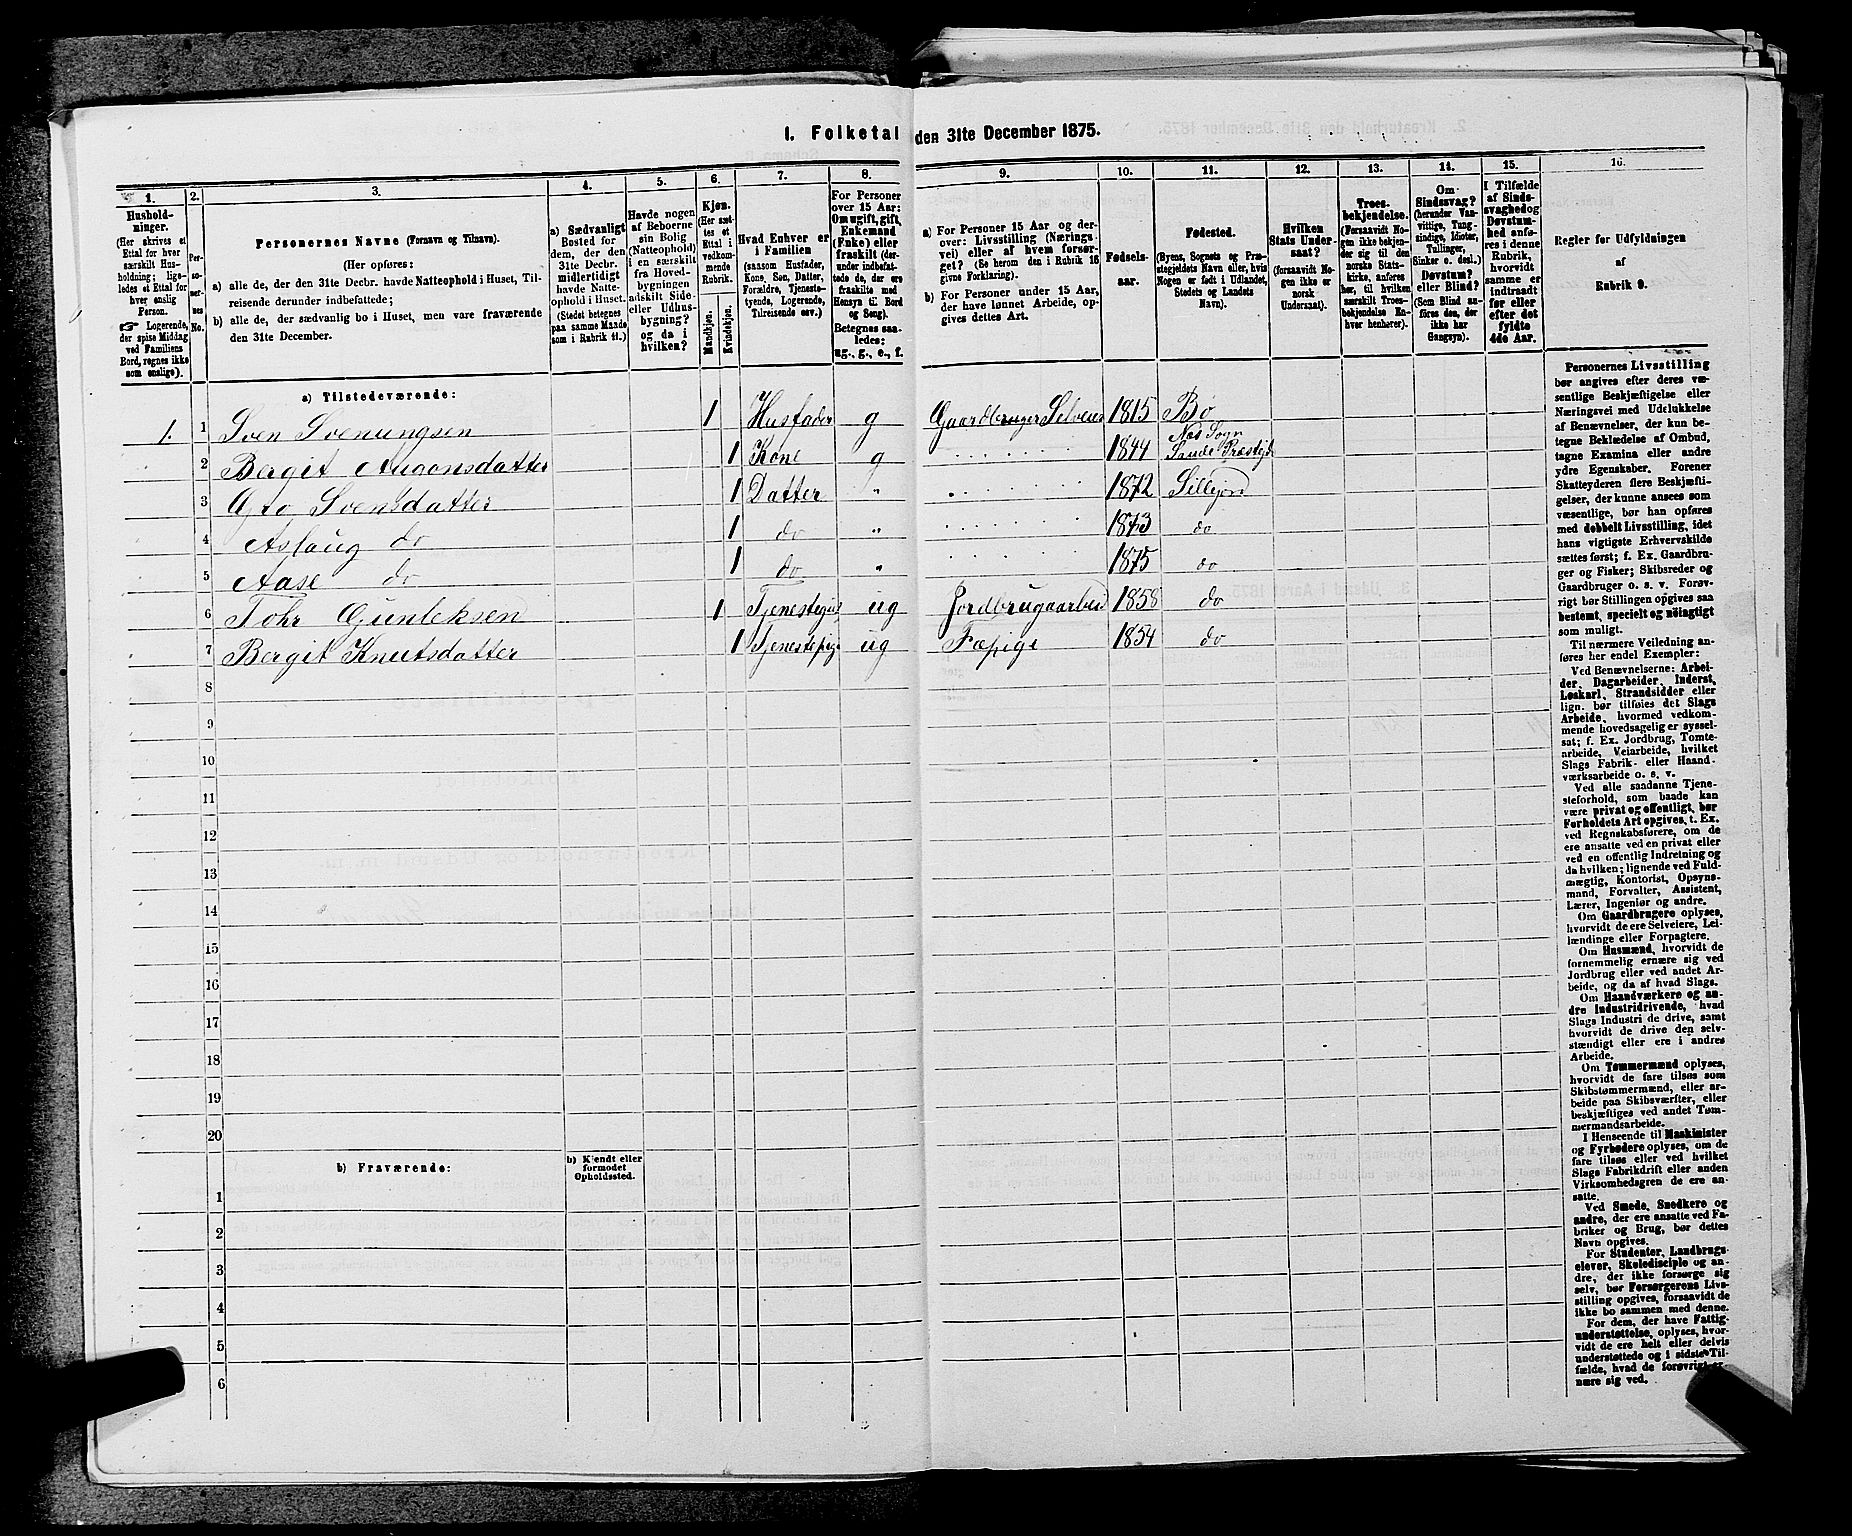 1. Folketal den 31te December 1875.
1.
Hushold-
ninger.
(Her skrives et
Ettal for hver
særskilt Hus-
holdning; lige-
ledes et Ettal for
hver enslig
Person.
☞ Logerende,
der spise Middag
ved Familiens
Bord, regnes ikke
som enslige).
2.
Per-
so-
ner-
nes
No.
3.
Personernes Navne (Fornavn og Tilnavn).
(Her opføres:
a) alle de, der den 31te Decbr. havde Natteophold i Huset, Til-
reisende derunder indbefattede;
b) alle de, der sædvanlig bo i Huset, men vare fraværende
den 31te December.
4.
a) Sædvanligt
Bosted for
dem, der den
31te Decbr.
midlertidigt
havde Natte-
ophold i Huset.
(Stedet betegnes
paa samme Maade
som i Rubrik 11.)
5.
Havde nogen
af Beboerne
sin Bolig
(Natteophold)
en særskilt
fra Hoved-
bygningen
adskilt Side-
eller Udhus-
bygning?
og da i
hvilken?
6.
Kjøn.
(Her sæt-
tes et
Ettal i
vedkom-
mende
Rubrik.
Mandkjøn.
Kvindekjøn.
7.
Hvad Enhver er
i Familien
(saasom Husfader,
Kone, Søn, Datter,
Forældre, Tjeneste-
tyende, Logerende,
Tilreisende osv.)
8.
For Personer
over 15 Aar:
Om ugift, gift,
Enkemand
(Enke) eller
fraskilt (der-
under indbefat-
tede de, der ere
fraskilte med
Hensyn til Bord
og Seng).
Betegnes saa-
ledes:
ug., g., e., f.
9.
a) For Personer 15 Aar og der-
over: Livsstilling (Nærings-
vei) eller af hvem forsør-
get? (Se herom den i Rubrik 16
givne Forklaring).
b) For Personer under 15 Aar,
der have lønnet Arbeide, op-
gives dettes Art.
10.
Fødsels-
aar.
11.
Fødested.
(Byens, Sognets og Præ-
stegjeldets Navn eller, hvis
Nogen er født i Udlandet,
Stedets og Landets
Navn).
12.
Hvilken
Stats Under-
saat?
(forsaavidt No-
gen ikke er
norsk
Undersaat).
13.
Troes-
bekjendelse.
(Forsaavidt No-
gen ikke bekjen-
der sig til den
norske Stats-
kirke, anføres
her, til hvilken
særskilt Troes-
bekjendelse En-
hver henhører).
14.
Om
Sindssvag?
(herunder Van-
vittige, Tung-
sindige, Idioter,
Tullinger,
Sinker o. desl.)
Døvstum?
eller Blind?
(Som Blind an-
føres den, der
ikke har
Gangsyn).
15.
I Tilfælde
af Sinds-
svaghed og
Døvstum-
hed anfø-
res i denne
Rubrik,
hvorvidt
samme er
indtraadt
før eller
efter det
fyldte
4de Aar.
16.
Regler for Udfyldningen
af
Rubrik 9.
a) Tilstedeværende:
1. 1 Sven Svenungsen 1 Husfader g Gaardbruger Selveier 1815 Bø
2 Bergit Augonsdatter 1 Kone g 1844 Næs Sogn Saude Præstgjd
3 Gro Svensdatter 1 Datter " 1872 Sillejord
4 Aslaug do 1 do " 1873 do
5 Aase do 1 do " 1875 do
6 Tohr Gunleksen 1 Tjenestegut ug Jordbrugaarbeid 1858 do
7 Bergit Knutsdatter 1 Tjenestepige ug Fæpige 1854 do
8
9
10
11
12
13
14
15
16
17
18
19
20
b) Fraværende:
b) Kjendt eller
formodet
Opholdssted.
1
2
3
4
5
6
Personernes Livsstilling
bør angives efter deres væ-
sentlige Beskjæftigelse eller
Næringsvei med Udelukkelse
af Benævnelser, der kun be-
tegne Beklædelse af Ombud,
tagne Examina eller andre
ydre Egenskaber. Forener
Skatteyderen flere Beskjæfti-
gelser, der kunne ansees som
væsentlige, bør han opføres
med dobbelt Livsstilling, idet
hans vigtigste Erhvervskilde
sættes først; f. Ex. Gaardbru-
ger og Fisker; Skibsreder og
Gaardbruger o. s. v. Forøv-
rigt bør Stillingen opgives saa
bestemt, specielt og nöiagtigt
som muligt.
Til nærmere Veiledning an-
føres her endel Exempler:
Ved Benævnelserne: Arbei-
der, Dagarbeider, Inderst,
Løskarl, Strandsidder eller
lign. bør tilføies det Slags
Arbeide, hvormed vedkom-
mende hovedsagelig er syssel-
sat; f. Ex. Jordbrug, Tomte-
arbeide, Veiarbeide, hvilket
Slags Fabrik- eller Haand-
værksarbeide o. s. v.
Ved alle saadanne Tjene-
steforhold, som baade kan
være privat og offentligt, bør
Forholdets Art opgives, t. Ex.
ved Regnskabsførere, om de
ere ansatte ved en privat eller
ved en offentlig Indretning og
da hvilken; lignende ved Fuld-
mægtig, Kontorist, Opsyns-
mand, Forvalter, Assistent,
Lærer, Ingeniør og andre.
Om Gaardbrugere oplyses,
hvorvidt de ere Selveiere, Lei-
lændinge eller Forpagtere.
Om Husmænd, hvorvidt de
fornemmelig ernære sig ved
Jordbrug eller ved andet Ar-
beide, og da af hvad Slags.
Om Haandværkere og an-
dre Industridrivende, hvad
Slags Industri de drive, samt
hvorvidt de drive den selv-
stændigt eller ere i andres
Arbeide.
Om Tømmermænd oplyses,
hvorvidt de fare tilsøs som
Skibstømmermænd, eller ar-
beide paa Skibsværfter, eller
beskjæftiges ved andet Tøm-
mermandsarbeide.
I Henseende til Maskinister
og Fyrbødere oplyses, om de
fare tilsøs eller ved hvilket
Slags Fabrikdrift eller anden
Virksomhedsgren de ere an-
satte.
Ved Smede, Snedkere og
andre, der ere ansatte ved Fa-
briker og Brug, bør dettes
Navn opgives.
For Studenter, Landbrugs-
elever, Skoledisciple og an-
dre, der ikke forsørge sig
selv, bør Forsørgerens Livs-
stilling opgives, forsaavidt de
ikke bo sammen med denne.
For dem, der have Fattig-
understøttelse, oplyses, hvor-
vidt de ere helt eller delvis
understøttede og i sidste Til-
fælde, hvad de forøvrigt er-
nære sig ved.